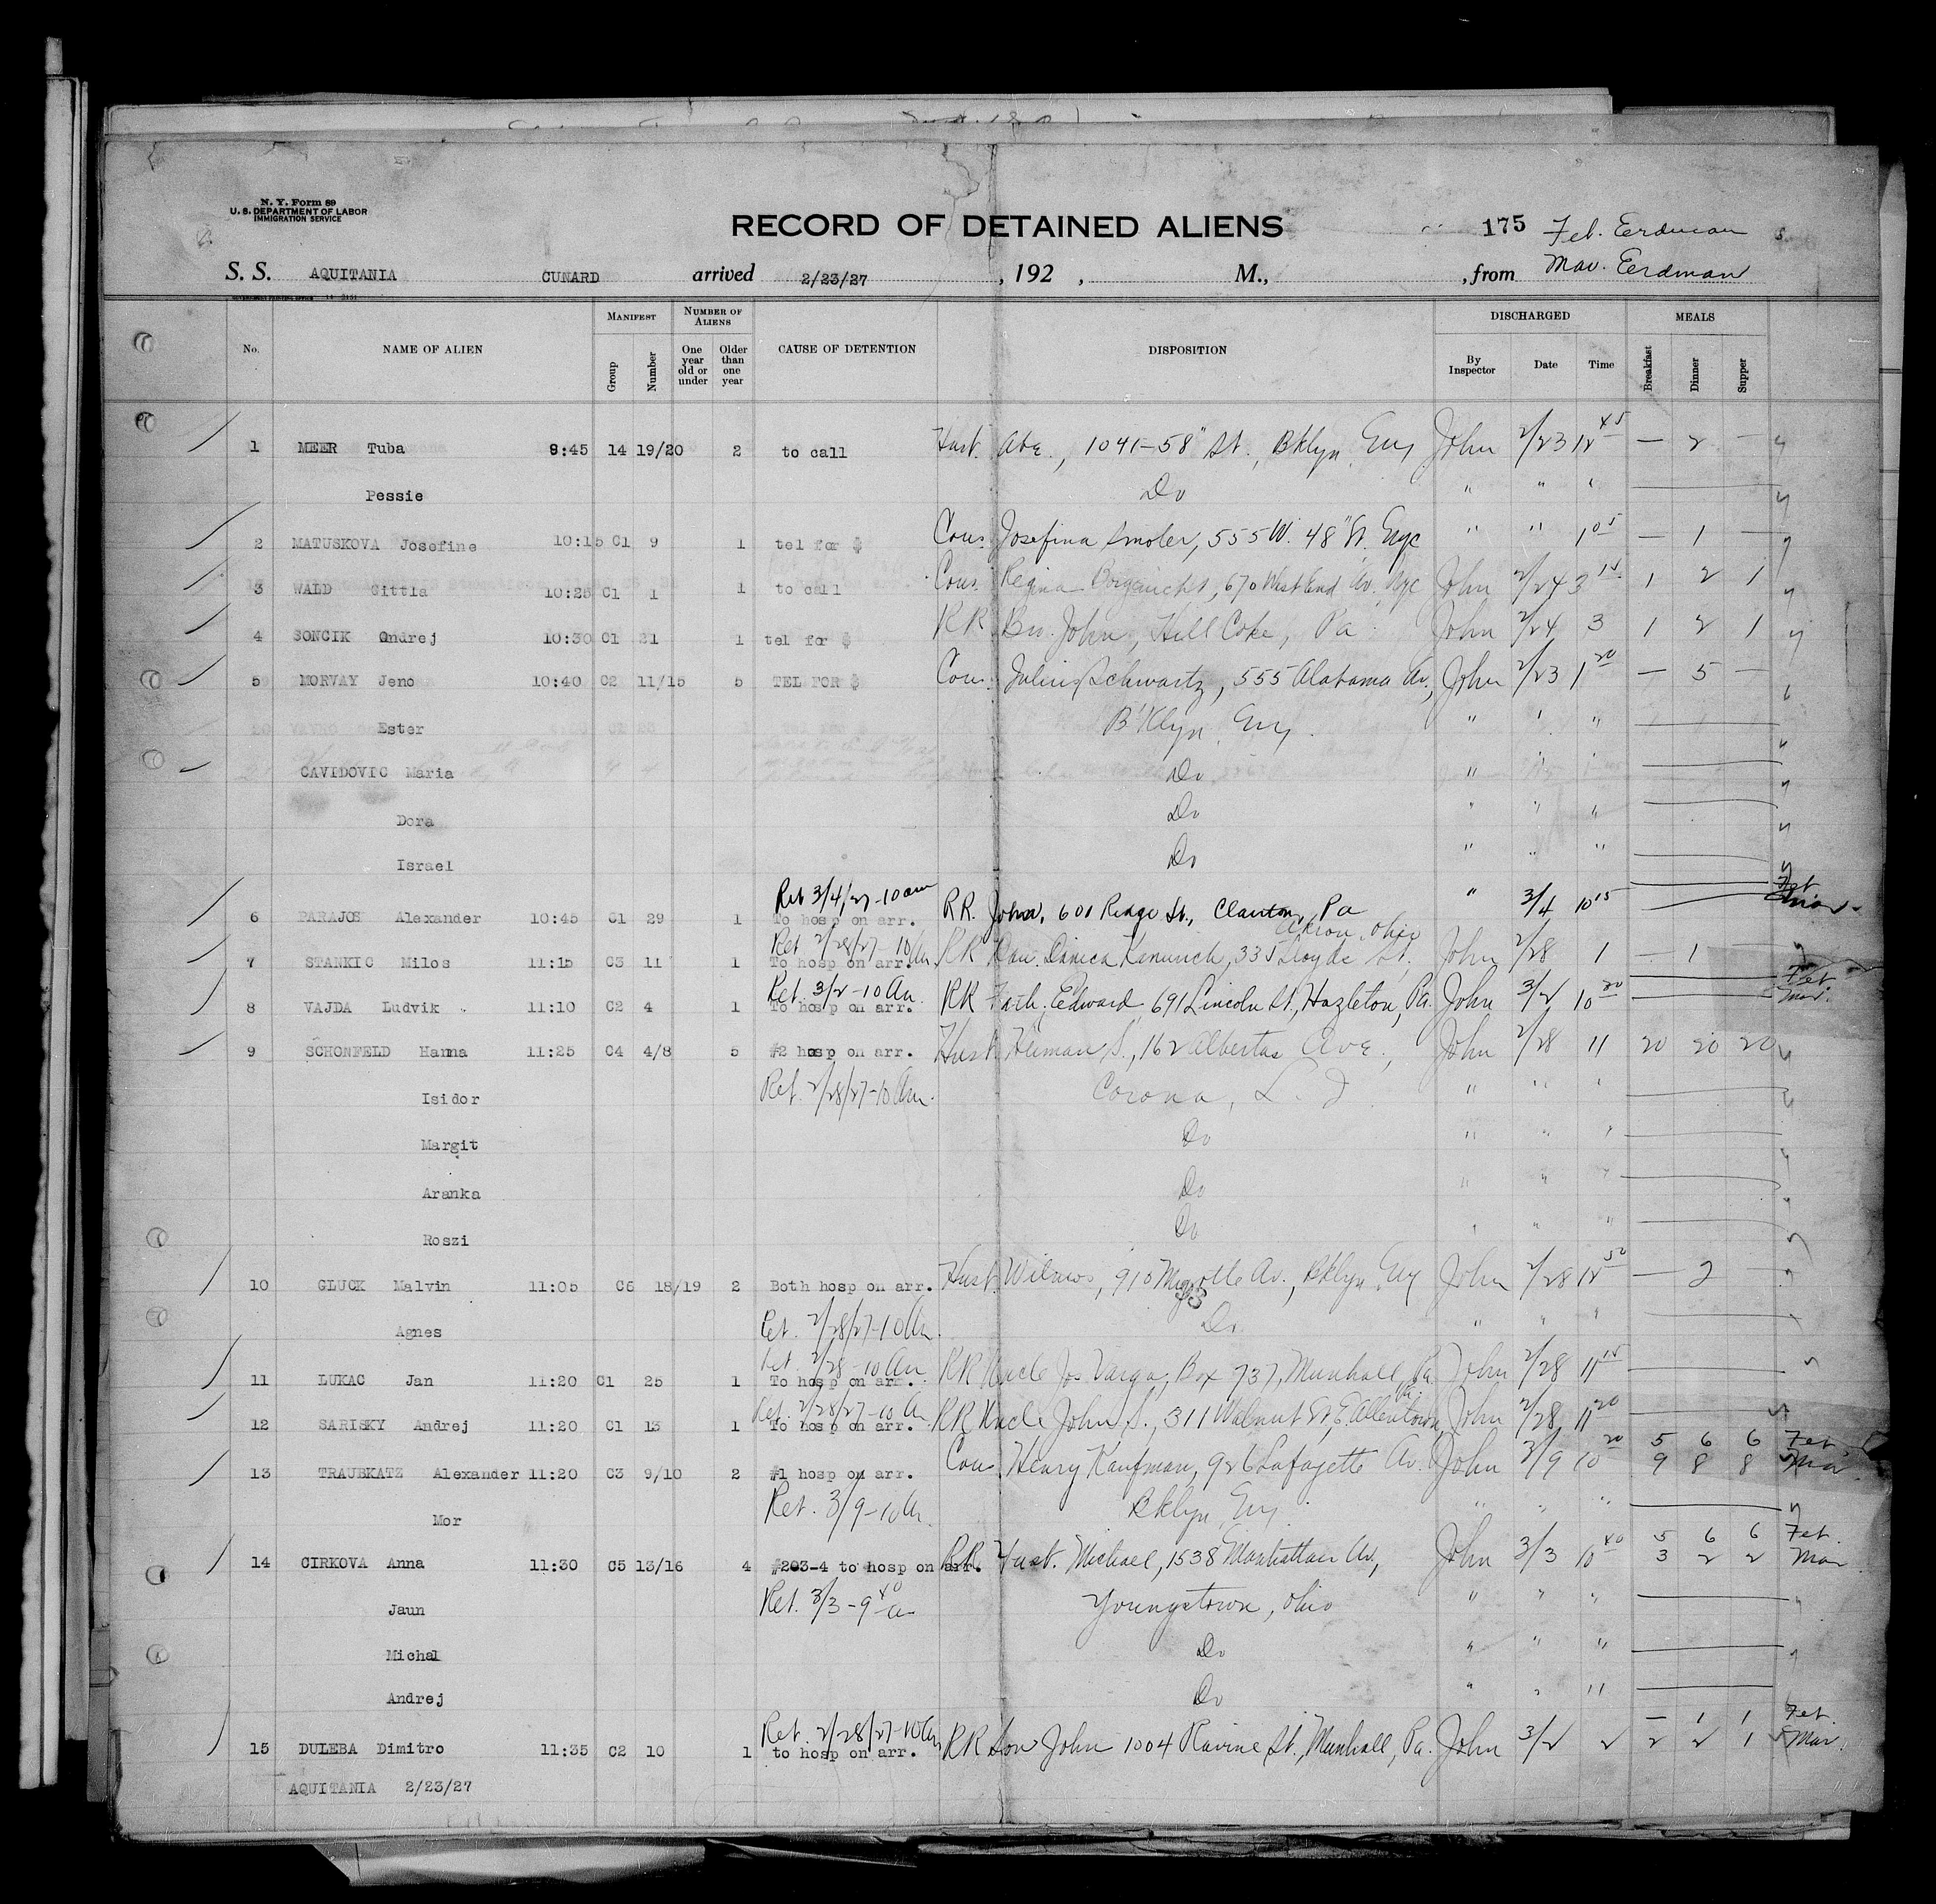 N. Y. Form 89
U. S. DEPARTMENT OF LABOR
IMMIGRATION SERVICE
RECORD OF DETAINED ALIENS
175 Feb. Eerdman
S. S. AQUITANIA CUNARD arrived 2/23/27, 192 , M., , from Mar. Eerdman
No. NAME OF ALIEN MANIFEST Group Number NUMBER OF ALIENS One year old or under Older than one year CAUSE OF DETENTION DISPOSITION DISCHARGED By Inspector Date Time MEALS Breakfast Dinner Supper
1 MEER Tuba 9:45 14 19/20 2 to call Husb. Abe., 1041-58" St., Bklyn, Ny John 2/23 12 45 — 2 —
Pessie Do " " "
2 MATUSKOVA Josefine 10:15 C1 9 1 tel for $ Cous. Josefina Smoler, 555 W. 48" St. Nyc " " 1 05 — 1 —
3 WALD Gittla 10:25 C1 1 1 to call Cous. Regina 670 West End Av. Nyc John 2/24 3 1 2 1
4 SONCIK Ondrej 10:30 C1 21 1 tel for $ RR Bro. John, Hill Coke, Pa John 2/24 3 1 2 1
5 MORVAY Jeno 10:40 C2 11/15 5 TEL FOR $ Cous. Julius Schwartz, 555 Alabama Av., John 2/23 1 20 — 5 —
Ester B'Klyn, Ny. " " "
CAVIDOVIC Maria Do " " "
Dora Do " " "
Israel Do " " "
Ret 3/4/27-10am
6 PARAJOS Alexander 10:45 C1 29 1 To hosp on arr. RR. John, 601 Ridge St., Clairton, Pa " 3/4 10 15 Feb. Mar.
Ret 2/28/27-10Am. Akron, Ohio
7 STANKIC Milos 11:15 C3 11 1 To hosp on arr. RR Danica 335 Lloyde St. John 2/28 1 — 1
Ret. 3/2-10 Am. Feb.
8 VAJDA Ludvik 11:10 C2 4 1 To hosp on arr. RR Fath. Edward 691 Lincoln St., Hazleton, Pa. John 3/2 10 20 Mar.
9 SCHONFELD Hanna 11:25 C4 4/8 5 #2 hosp on arr. Husb. Heiman S., 162 Albertus Ave., John 2/28 11 20 20 20
Isidor Ret. 2/28/27-10Am. Corona, L. I " " "
Margit Do " " "
Aranka Do " " "
Roszi Do " " "
10 GLUCK Malvin 11:05 C6 18/19 2 Both hosp on arr. Husb. 910 Myrtle Av., Bklyn, Ny John 2/28 12 50 — 2
Agnes Ret. 2/28/27-10Am. Do " " "
Ret. 2/28-10Am
11 LUKAC Jan 11:20 C1 25 1 To hosp on arr. RR Uncle Jos Varga, Box 737, Munhall, Pa. John 2/28 11 15
Ret. 2/28/27-10 Am Pa.
12 SARISKY Andrej 11:20 C1 13 1 To hosp on arr. RR Uncle John S., 311 Walnut St, E. Allentown, John 2/28 11 20
5 6 6 Feb.
13 TRAUBKATZ Alexander 11:20 C3 9/10 2 #1 hosp on arr. Cous. Henry Kaufman, 926 Lafayette Av. John 3/9 10 20 9 8 8 Mar.
Mor Ret. 3/9-10Am. Bklyn, Ny. " " "
5 6 6 Feb.
14 CIRKOVA Anna 11:30 C5 13/16 4 #203-4 to hosp on arr. RR Husb. Michael, 1538 Manhattan Av, John 3/3 10 40 3 2 2 Mar
Jaun Ret. 3/3-9 40 a Youngstown, Ohio " " "
Michal Do " " "
Andrej Do " " "
Ret. 2/28/27-10Am — 1 1 Feb.
15 DULEBA Dimitro 11:35 C2 10 1 to hosp on arr. RR Son John 1004 Ravine St., Munhall, Pa. John 3/2 2 2 2 1 Mar.
AQUITANIA 2/23/27